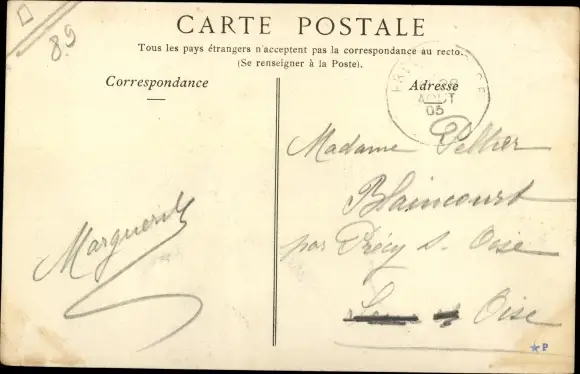 8.9
CARTE POSTALE
Tous les pays étrangers n'acceptent pas la correspondance au recto.
(Se renseigner à la Poste).
Correspondance
Adresse
28
AOUT
05
Madame Peltier
Blaincourt
par Précy s. Oise
Oise
Marguerite
P